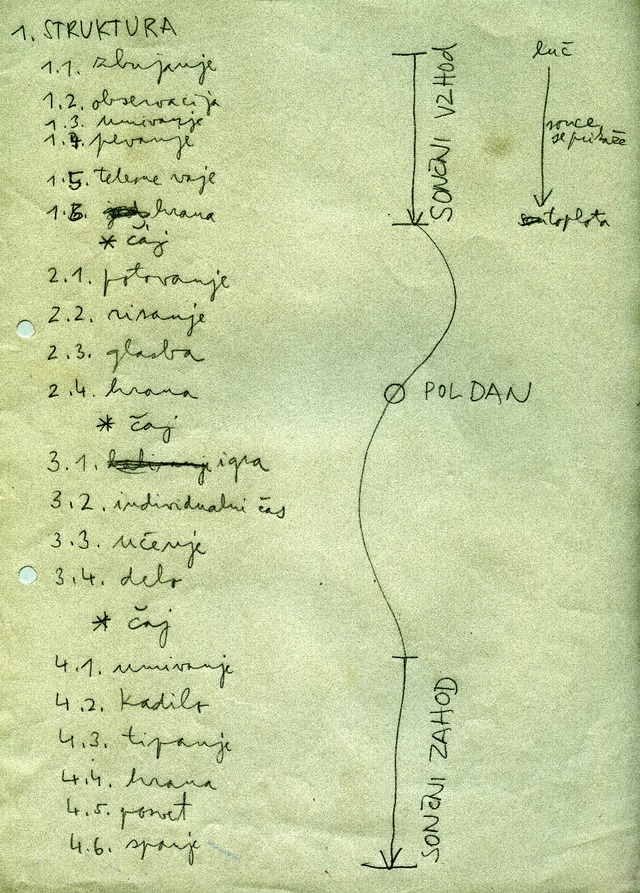 1. STRUKTURA
1.1. zbujanje
1.2. observacija
1.3. umivanje
1.4. pevanje
1.5. telesne vaje
1.6. hrana
* čaj
2.1. potovanje
2.2. risanje
2.3. glasba
2.4. hrana
* čaj
3.1. igra
3.2. individualni čas
3.3. učenje
3.4. delo
* čaj
4.1. umivanje
4.2. kadilo
4.3. tipanje
4.4. hrana
4.5. posvet
4.6. spanje
SONČNI VZHOD
luč
sonce
se prikaže
toplota
POLDAN
SONČNI ZAHOD